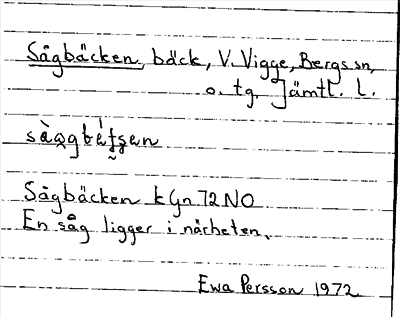 Sågbäcken, bäck, V. Vigge, Bergs sn,
o. tg. Jämtl. l.
Sågbäcken k Gn 72 NO
En såg ligger i närheten.
Ewa Persson 1972